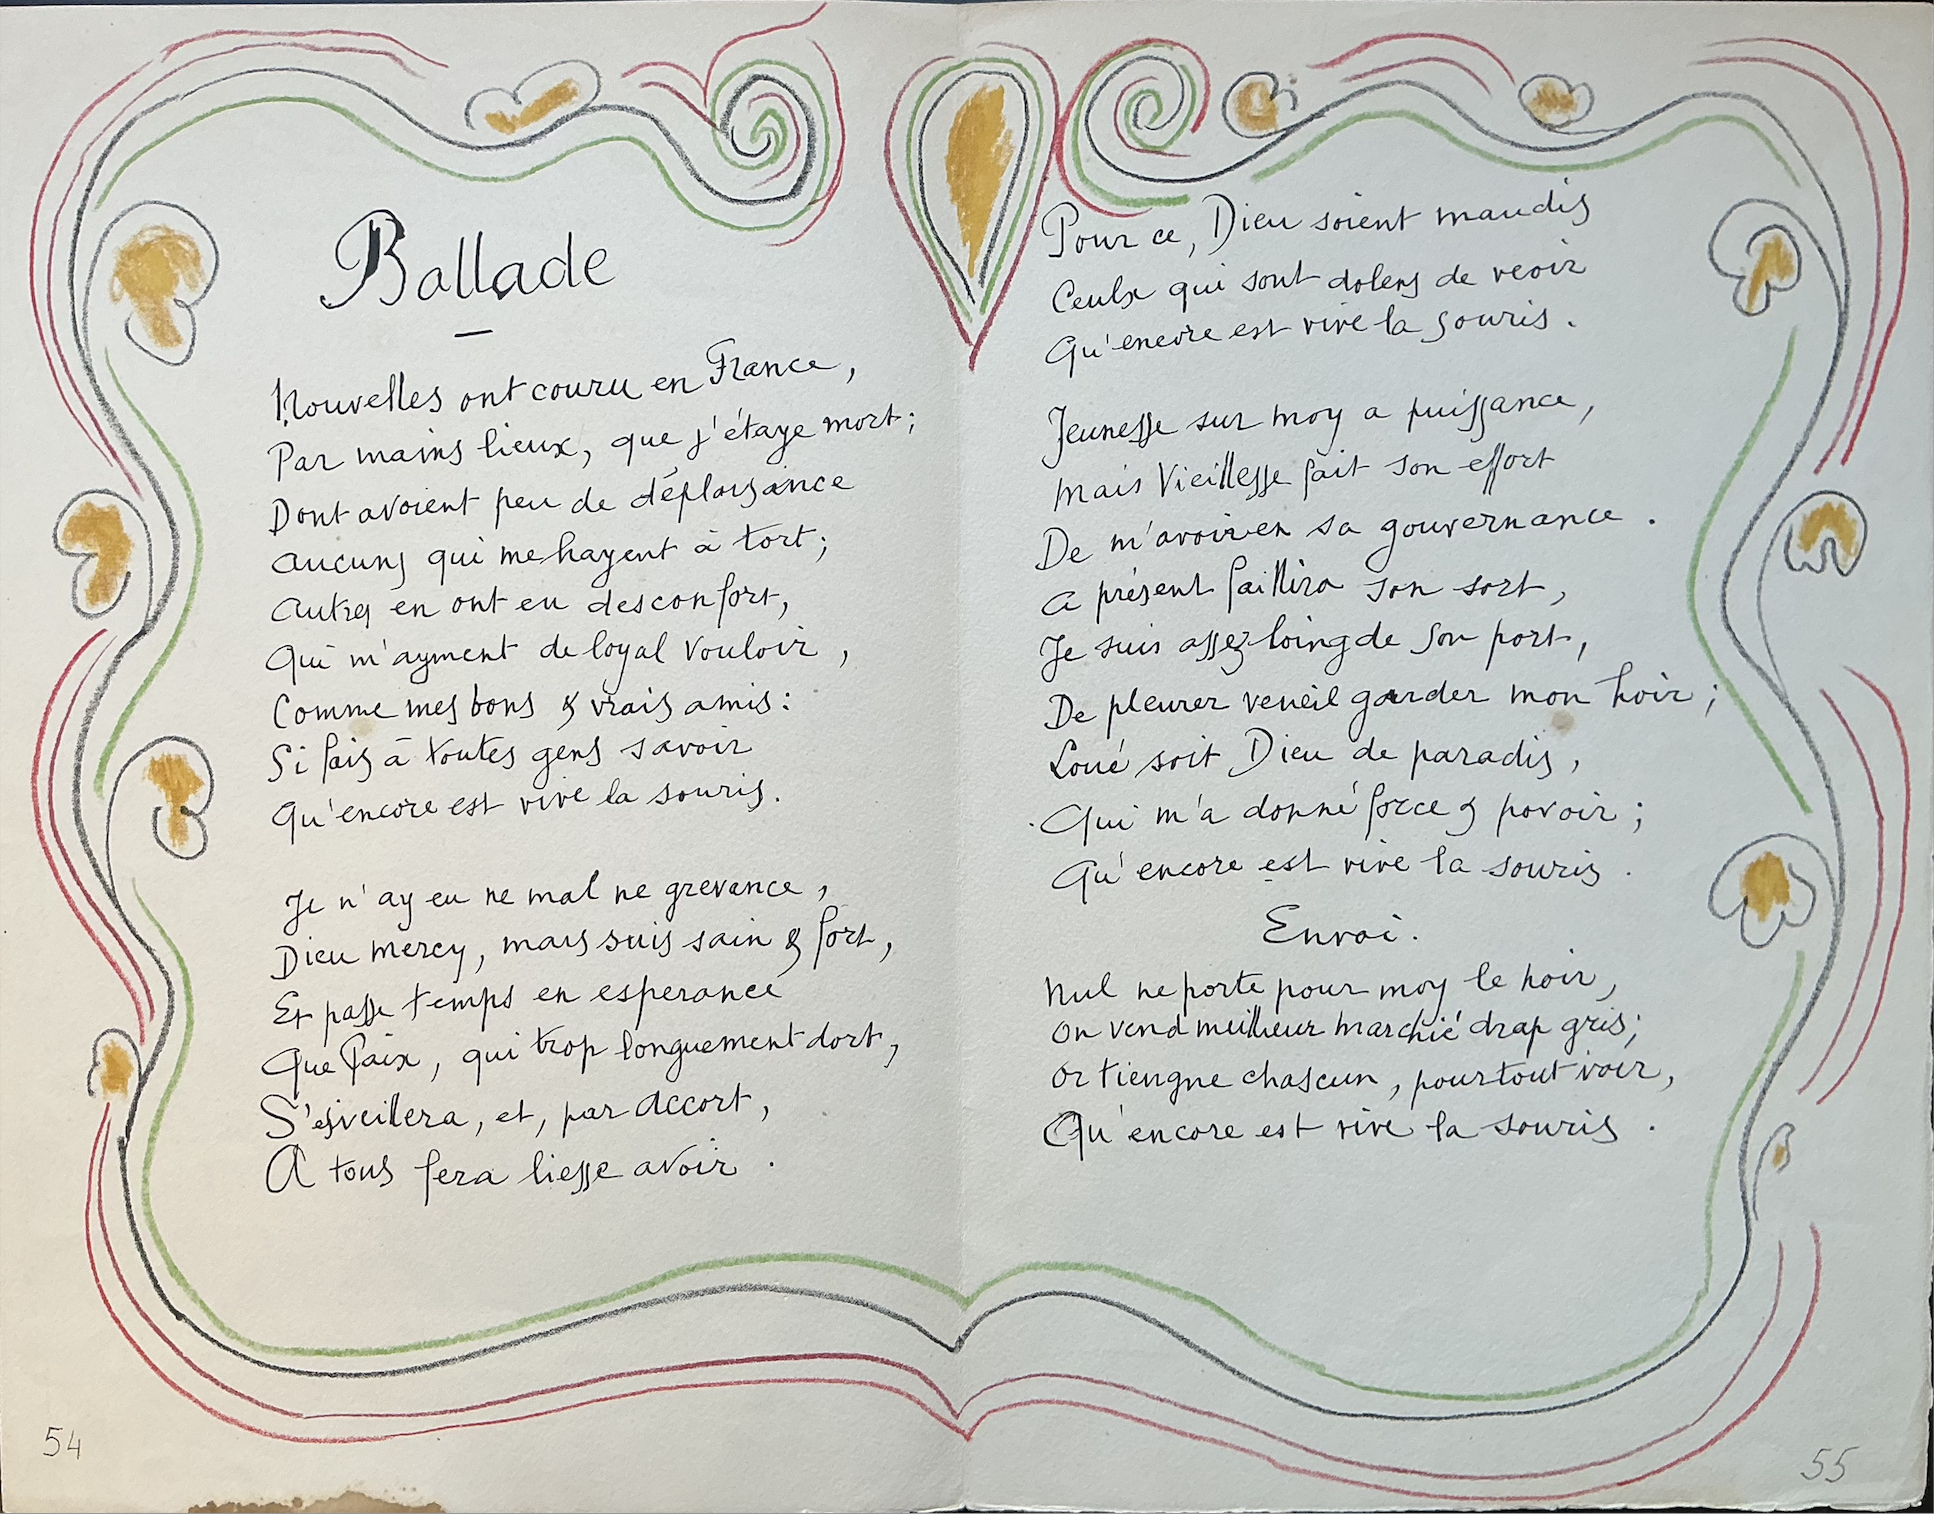 Ballade
Nouvelles ont couru en France,
Par mains lieux, que j'étaye mort;
Dont avoient peu de déplaisance
Aucuns qui me hayent à tort;
Autres en ont eu desconfort,
Qui m'ayment de loyal vouloir,
Comme mes bons & vrais amis:
Si fais à toutes gens savoir
Qu'encore est vive la souris.
Je n'ay eu ne mal ne grevance,
Dieu mercy, mais suis sain & fort,
Et passe temps en esperance
Que Paix, qui trop longuement dort,
S'esveillera, et, par accort,
A tous fera liesse avoir.
54
Pour ce, Dieu soient maudis
Ceulx qui sont dolens de veoir
Qu'encore est vive la souris.
Jeunesse sur moy a puissance,
Mais Vieillesse fait son effort
De m'avoir en sa gouvernance.
A présent faillira son sort,
Je suis assez loing de son port,
De pleurer vueil garder mon hoir;
Loué soit Dieu de paradis,
Qui m'a donné force & povoir;
Qu'encore est vive la souris.
Envoi.
Nul ne porte pour moy le noir,
On vend meilleur marchié drap gris;
Or tiengne chascun, pour tout voir,
Qu'encore est vive la souris.
55